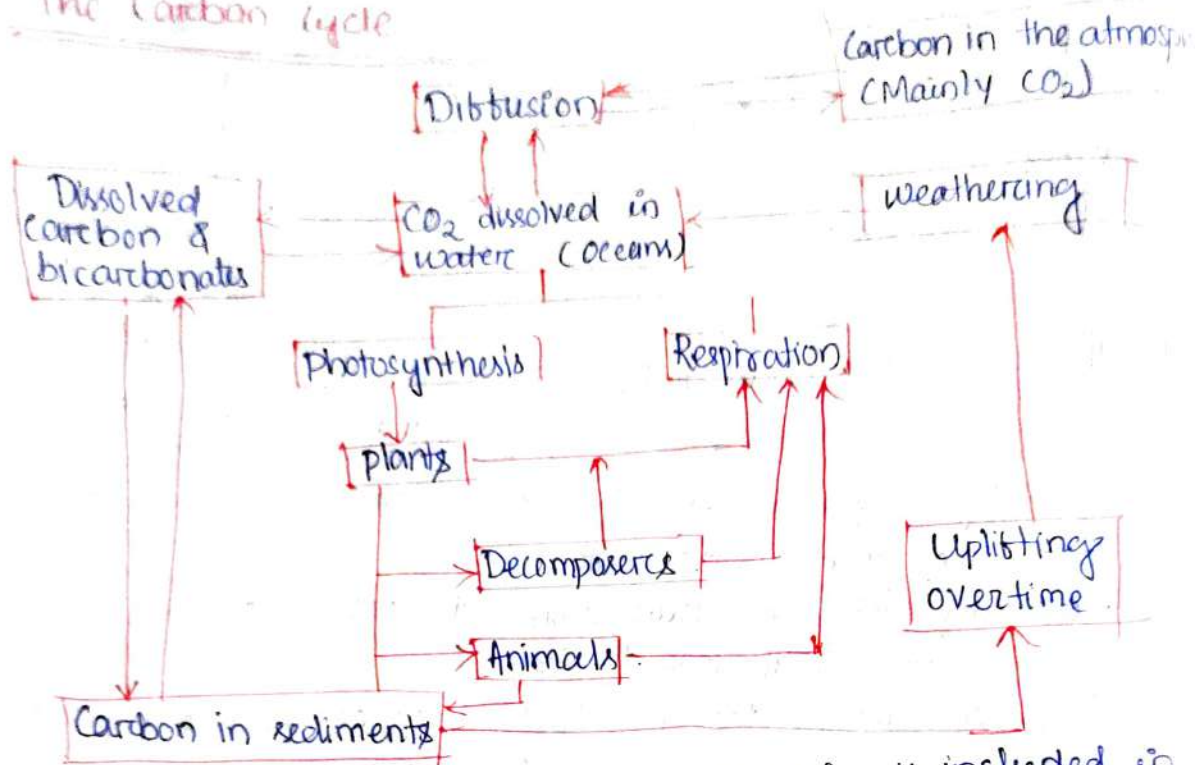 The Carbon Cycle
Carbon in the
(Mainly CO₂)
Diffusion
Dissolved
Carbon &
bicarbonates
CO₂ dissolved in
water (Oceans)
weathering
Photosynthesis
Respiration
plants
Decomposers
Uplifting
overtime
Animals
Carbon in sediments
included in